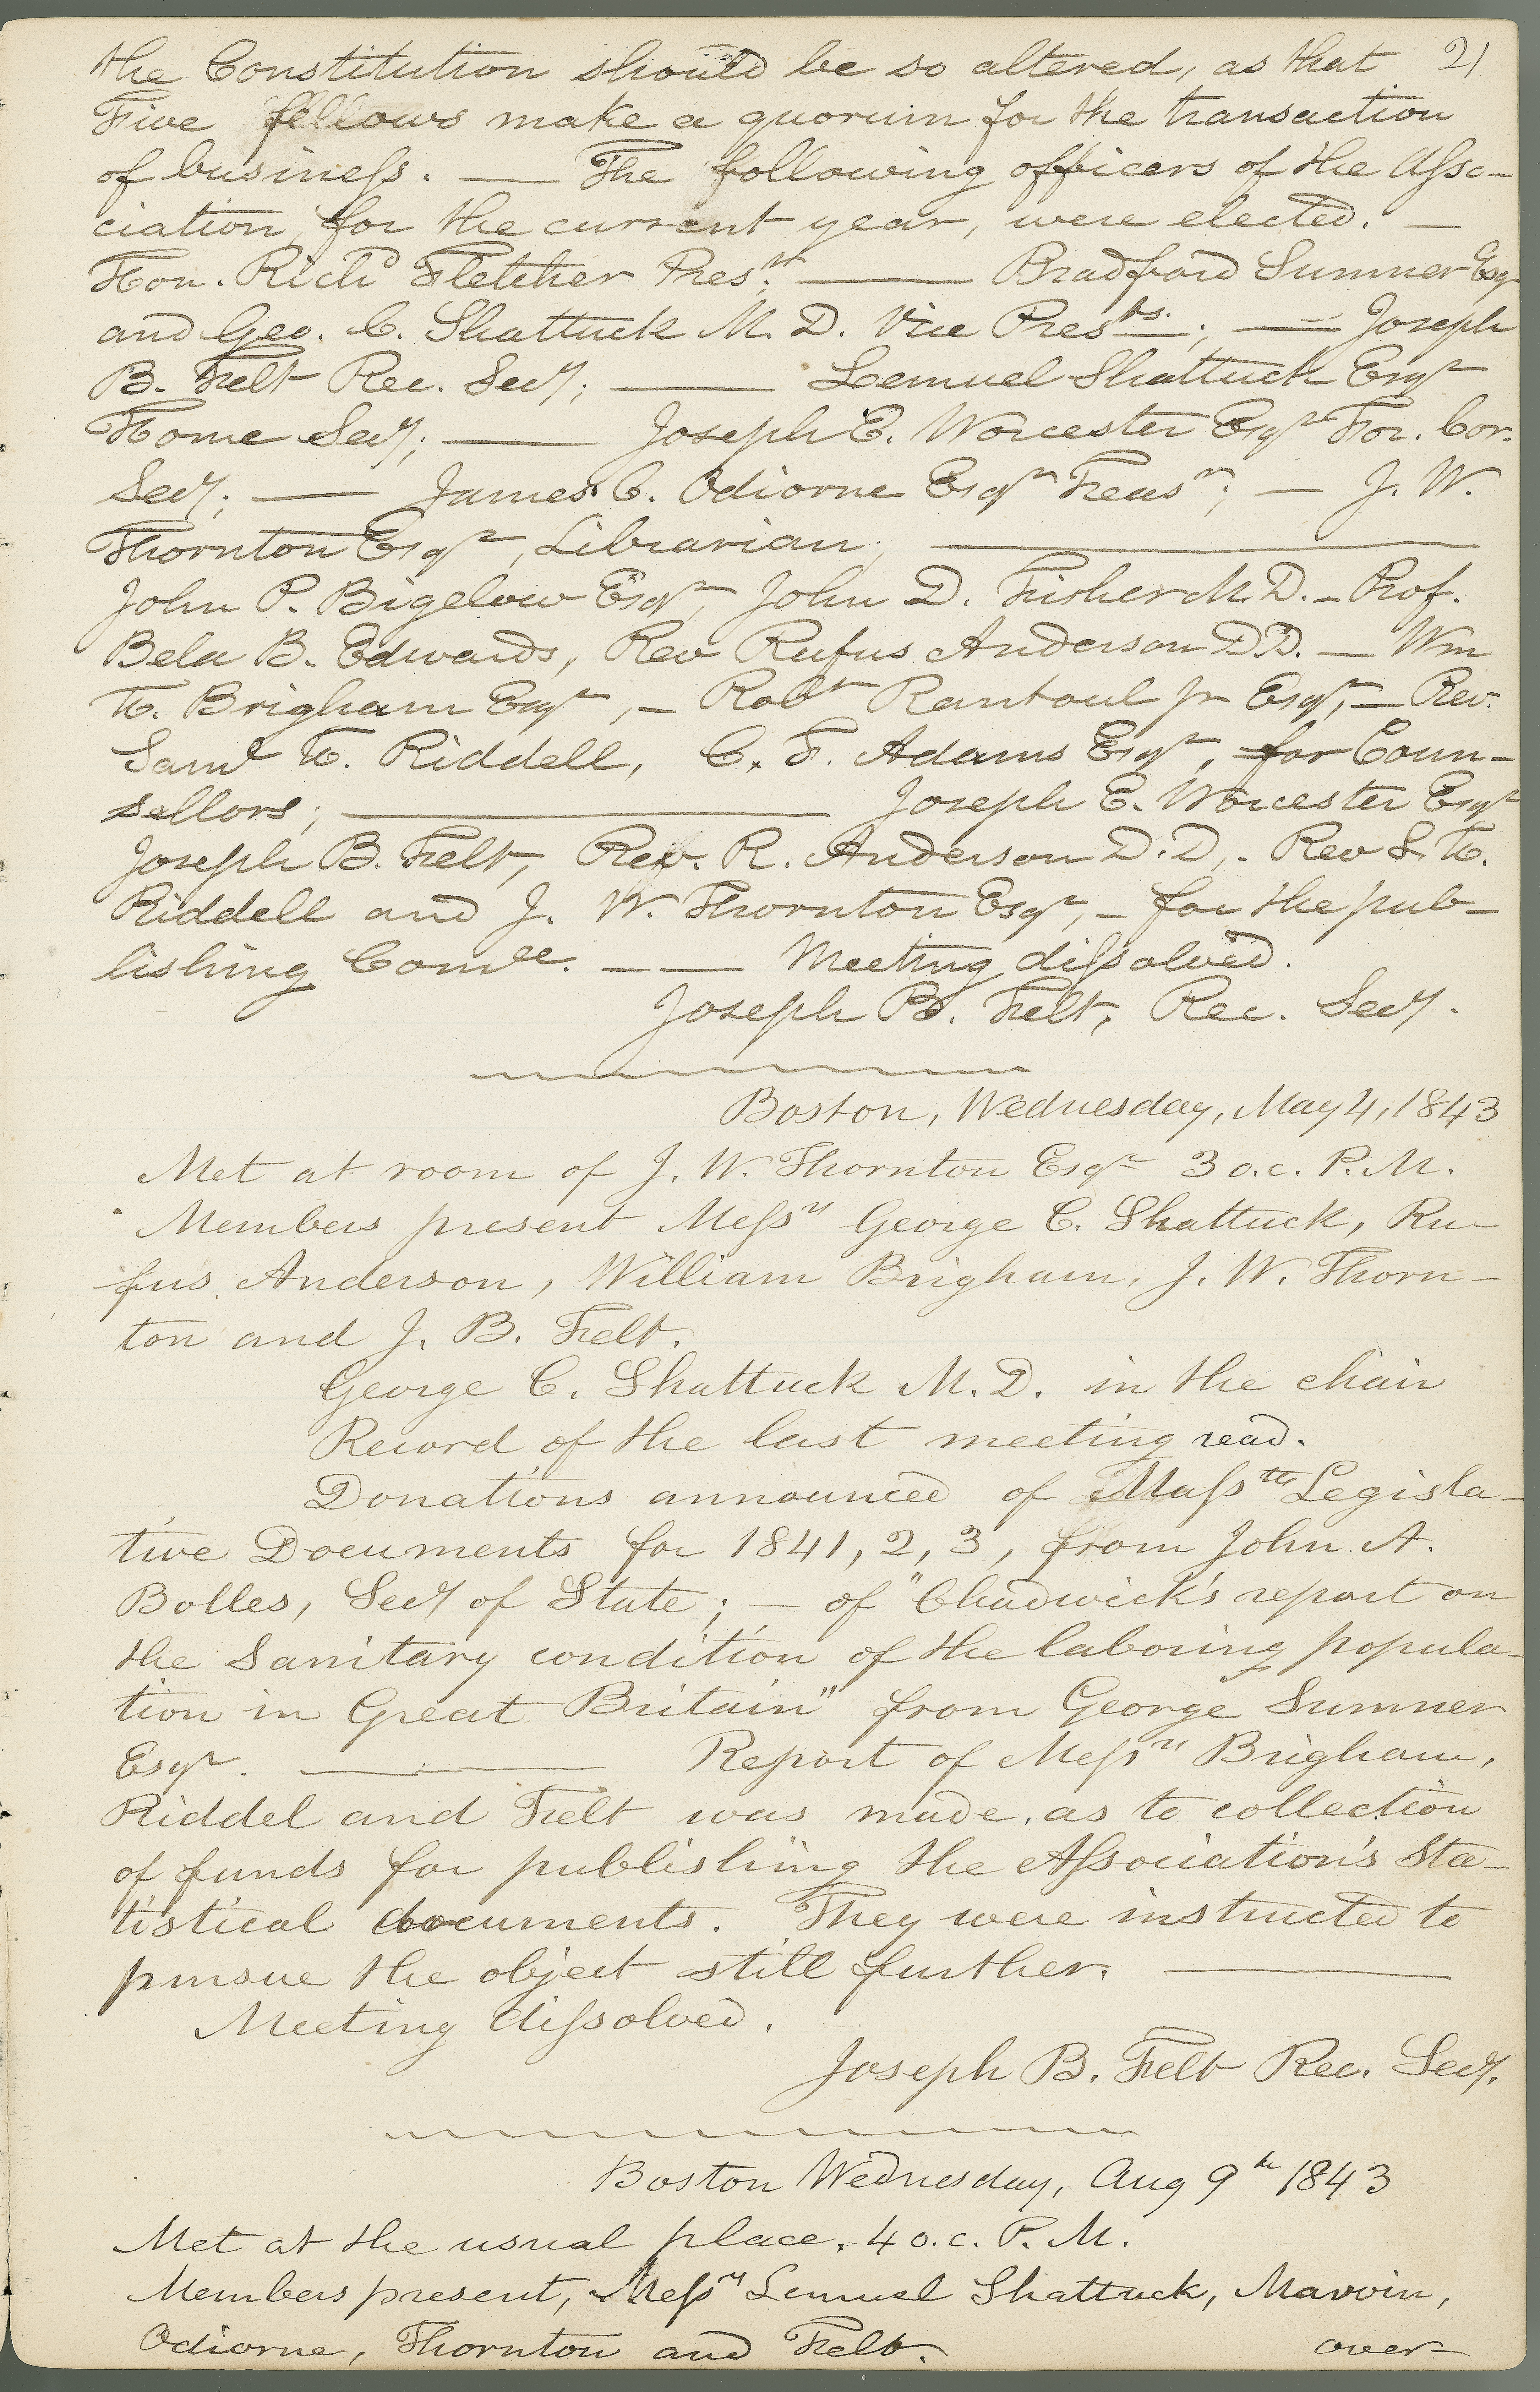 the Constitution should be so altered, as that 21
Five fellows make a quorum for the transaction
of business. — The following officers of the Asso-
ciation, for the current year, were elected. —
Hon. Richd Fletcher Prest; — Bradford Sumner Esqr
and Geo. C. Shattuck M. D. Vice Presdts.; — Joseph
B. Felt Rec. Secy; — Lemuel Shattuck Esqr
Home Secy; — Joseph E. Worcester Esqr For. Cor.
Secy; — James C. Odiorne Esqr Treasr; — J. W.
Thornton Esqr, Librarian; —
John P. Bigelow Esqr, John D. Fisher M. D. - Prof.
Bela B. Edwards, Rev Rufus Anderson D.D. — Wm
T. Brigham Esqr, - Robt Rantoul Jr Esqr, — Rev.
Saml H. Riddell, C. F. Adams Esqr, for Coun-
sellors; — Joseph E. Worcester Esqr
Joseph B. Felt, Rev. R. Anderson D.D, - Rev S. H.
Riddell and J. W. Thornton Esqr, - for the pub-
lishing Comtee. — — Meeting dissolved.
Joseph B. Felt, Rec. Secy.
Boston, Wednesday, May 4, 1843
Met at room of J. W. Thornton Esqr 3 o.c. P. M.
Members present Messrs George C. Shattuck, Ru-
fus Anderson, William Brigham, J. W. Thorn-
ton and J. B. Felt.
George C. Shattuck M. D. in the chair
Record of the last meeting read.
Donations announced of Masstts Legisla-
tive Documents for 1841, 2, 3, from John A.
Bolles, Secy of State; — of "Chadwick's report on
the Sanitary condition of the laboring popula-
tion in Great Britain" from George Sumner
Esqr. — Report of Messrs Brigham,
Riddel and Felt was made, as to collection
of funds for publishing the Association's Sta-
tistical documents. They were instructed to
pursue the object still further. —
Meeting dissolved.
Joseph B. Felt Rec. Secy.
Boston Wednesday, Aug 9th 1843
Met at the usual place, 4 o.c. P. M.
Members present, Messrs Lemuel Shattuck, Marvin,
Odiorne, Thornton and Felt. over